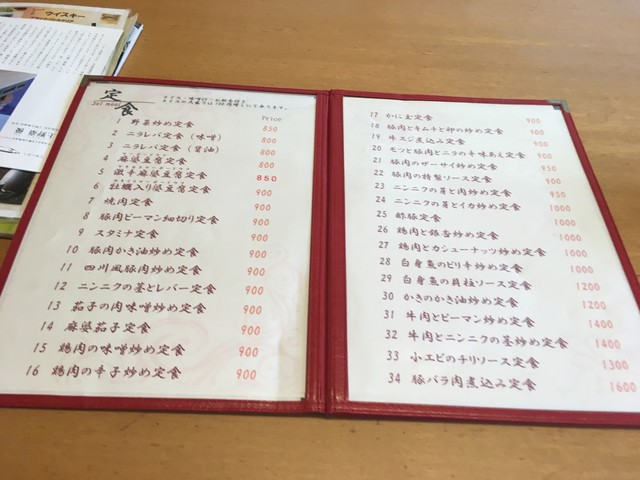 ウイスキー
定食
Set meal
Price
1 野菜炒め定食 850
2 ニラレバ定食(味噌) 800
3 ニラレバ定食(醤油) 800
4 麻婆豆腐定食 800
5 激辛麻婆豆腐定食 850
6 牡蠣入り麻婆豆腐定食 900
7 焼肉定食 900
8 豚肉ピーマン細切り定食 900
9 スタミナ定食 900
10 豚肉かき油炒め定食 900
11 四川風豚肉炒め定食 900
12 ニンニクの茎とレバー定食 900
13 茄子の肉味噌炒め定食 900
14 麻婆茄子定食 900
15 鶏肉の味噌炒め定食 900
16 鶏肉の辛子炒め定食 900
17 かに玉定食 900
18 豚肉とキムチと卵の炒め定食 900
19 牛スジ煮込み定食 900
20 モツと豚肉とニラの辛味あえ定食 900
21 豚肉のザーサイ炒め定食 950
22 豚肉の特製ソース定食 900
23 ニンニクの芽と肉炒め定食 950
24 ニンニクの芽とイカ炒め定食 1000
25 酢豚定食 1000
26 鶏肉と銀杏炒め定食 1000
27 鶏肉とカシューナッツ炒め定食 1000
28 白身魚のピリ辛炒め定食 1200
29 白身魚の貝柱ソース定食 1200
30 かきのかき油炒め定食 1200
31 牛肉とピーマン炒め定食 1400
32 牛肉とニンニクの茎炒め定食 1400
33 小エビのチリソース定食 1300
34 豚バラ肉煮込み定食 1600